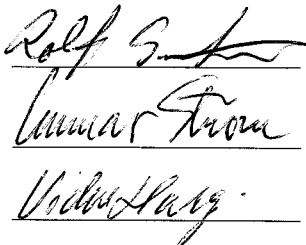 Rolf
Gunnar Strøm
Vidar Haug